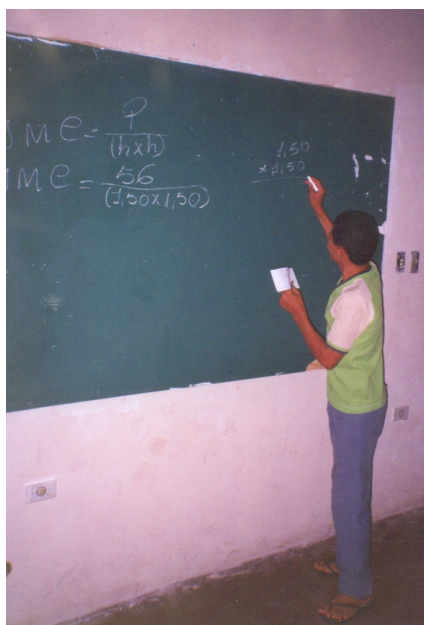 IMC = P
(h x h)
IMC = 56
(1,50 x 1,50)
1,50
x 1,50